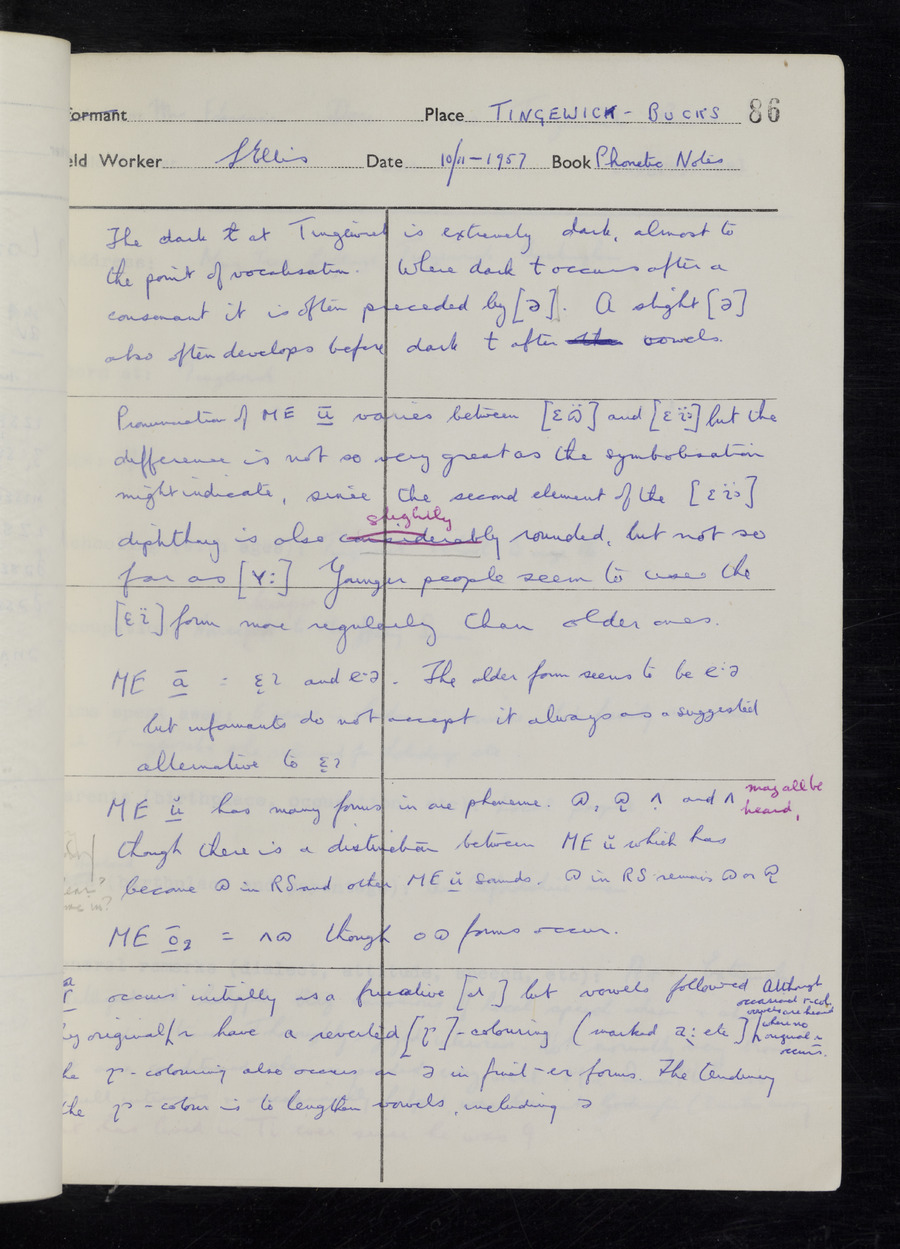 formant Place TINGEWICK - BUCKS 86
eld Worker S Ellis Date 10/11-1957 Book Phonetic Notes
The dark ɫ at Tingewick is extremely dark, almost to
the point of vocalisation. Where dark ɫ occurs after a
consonant it is often preceded by [ə]. A slight [ə]
also often develops before dark ɫ after vowels.
Pronunciation of ME ū varies between [ɛɷ̈] and [ɛɪ̈] but the
difference is not so very great as the symbolisation
might indicate, since the second element of the [ɛɪ̈]
slightly
diphthong is also considerably rounded, but not so
far as [ʏ:] Younger people seem to use the
[ɛɪ̈] form more regularly than older ones.
ME ā = ɛ̣ɪ and e·ə. The older form seems to be e·ə
but informants do not accept it always as a suggested
alternative to ɛ̣ɪ
ME ŭ has many forms in one phoneme. ɷ, ɷ̣ ʌ and ʌ may all be
heard,
though there is a distinction between ME ŭ which has
become ɷ in RS and other ME ŭ sounds. ɷ in RS remains ɷ or ɷ̣
ME ō₂ = ʌɷ though oɷ forms occur.
r occurs initially as a fricative [ɹ] but vowels followed Although
occasional r-col.
vowels are heard
by original r have a reverted [ɽ]-colouring (marked a: etc] where no
original r
occurs.
he ɽ-colouring also occurs on ə in final -er forms. The tendency
the ɽ-colour is to lengthen vowels, including ɔ